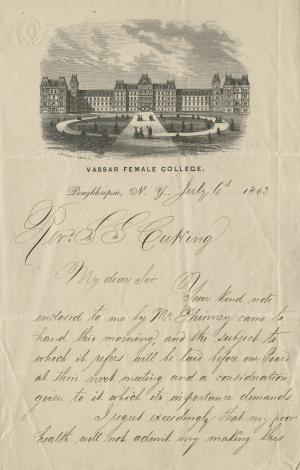 VASSAR FEMALE COLLEGE.
Poughkeepsie, N. Y., July 6th 1863
Revd. S G Cushing
My dear Sir
Your kind note
enclosed to me by Mr. Phinney came to
hand this morning, and the subject to
which it refers will be laid before our Board
at their next meeting and a consideration
given to it which its importance demands.
I regret exceedingly that my poor
health will not admit my making this